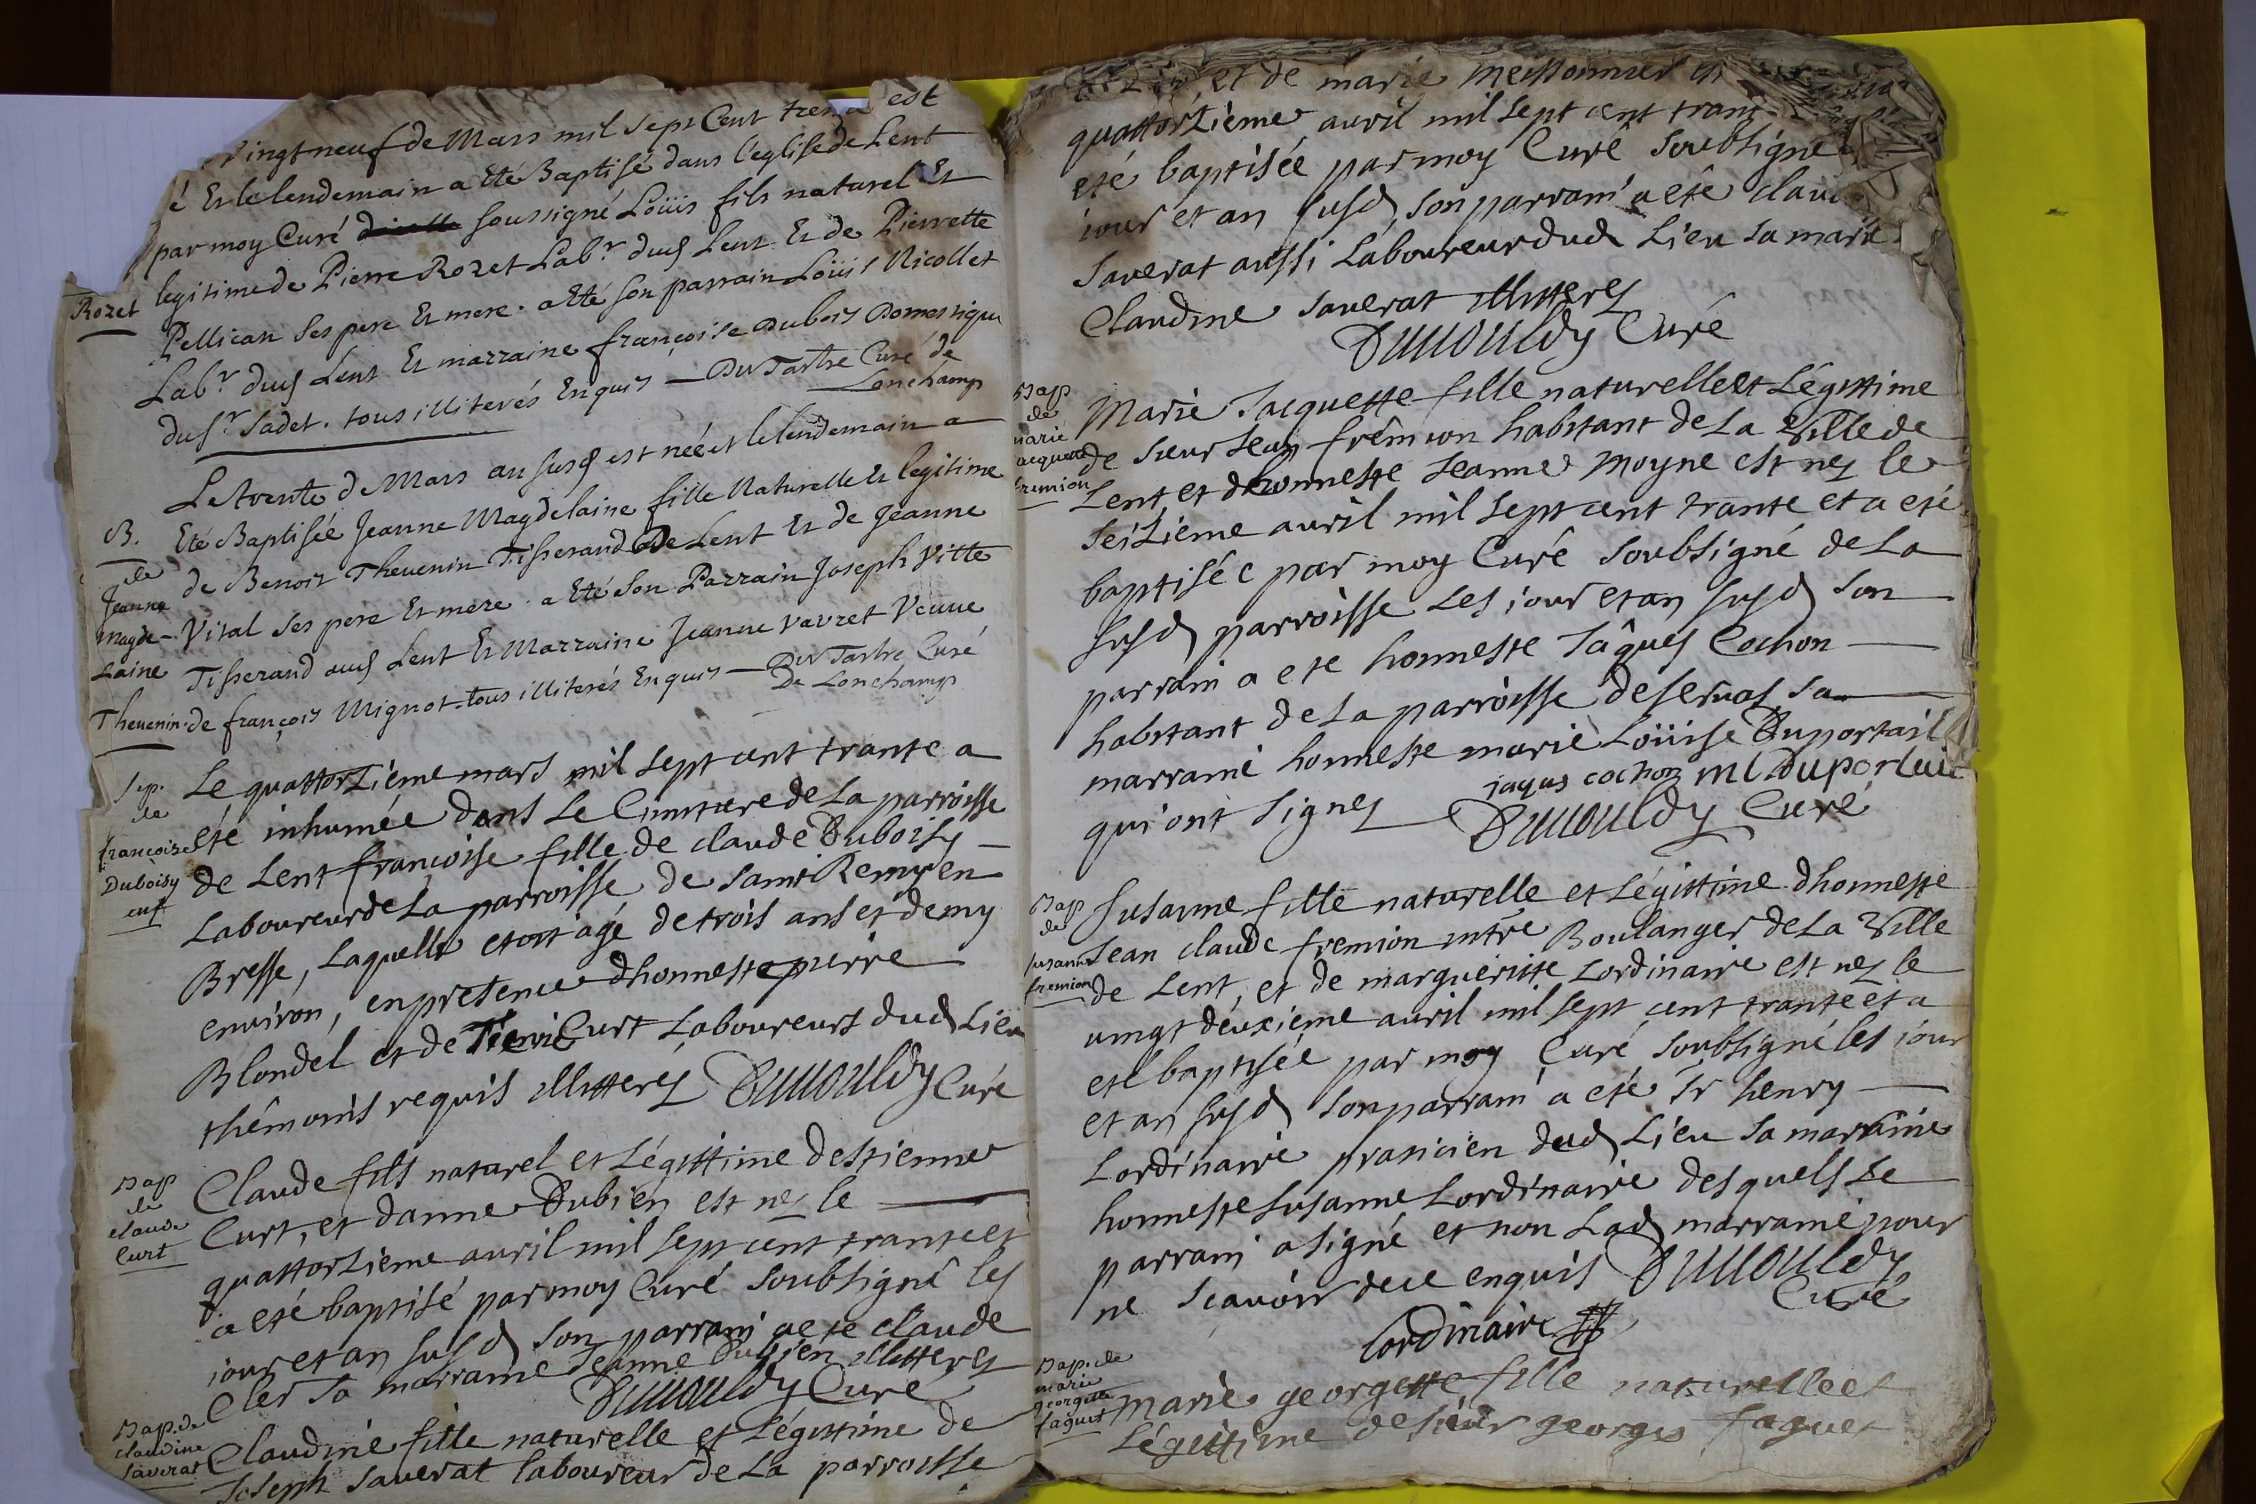 vingt neuf de Mars mil sept Cent trent a est
é Et le lendemain a Eté Baptisé dans l'eglise de Lent
par moy Curé soussigné Loüis fils naturel Et
legitime de Pierre Rozet Labr dud Lent Et de Pierrette
Rozet
Pellican ses pere Et mere. a Eté son parrain Loüis Nicollet
Labr dud Lent Et marraine françoise Dubois Domestique
du sr Sadet. tous illiterés Enquis — Du Tartre Curé de
Lonchamp
Le trente de Mars an susd est née et le lendemain a
Eté Baptisée Jeanne Magdelaine fille Naturelle Et legitime
de Benoit Thevenin Tisserand de Lent Et de Jeanne
Vital ses pere Et mere. a Eté son Parrain Joseph Vitte
Tisserand aud Lent Et Marraine Jeanne Vavret Veuve
de françois Mignot. tous illiterés Enquis — Du Tartre Curé
De Lonchamp
B.
de
Jeanne
Magde-
Laine
Thevenin.
Le quattorzième mars mil sept cent trante a
eté inhumée dans Le Cimitiere de La parroisse
de Lent françoise fille de claude Duboisy
Laboureur de La parroisse de saint Remy en
Bresse, Laquelle etoit agé de trois ans et demy
environ, en presence d'honneste pierre
Blondel et de Curt Laboureurs dud Lieu
thêmoins requis illitterez Dunouldy Curé
Sep.
de
françoise
Duboisy
enf.
Claude fils naturel et Légittime destienne
Curt, et danne Dubien est nez le
quattorzième avril mil sept cent trante et
a eté baptisé par moy Curé soubsigné les
jour et an susd son parrain a ete claude
Cler sa marraine Jeanne Dubien illitterez
Dunouldy Curé
Bap
de
claude
Curt
Claudine fille naturelle et Légittime de
Joseph Saverat laboureur de La parroisse
Bap. de
claudine
Saverat
et de marie
quattorzième avril mil sept cent trant
eté baptisée par moy Curé soubsigné
jour et an susd son parrain a eté claud
Saverat aussi Laboureur dud Lieu sa marr
Claudine Saverat illitterez
Dunouldy Curé
Marie Jacquette fille naturelle et Légittime
de sieur Jean frêmion habitant de La Ville de
Lent, et dhonneste Jeanne Moyne est nez le
seizième avril mil sept cent trante et a eté
baptisée par moy Curé soubsigné de La
susd parroisse Les jour et an susd son
parrain a ete honneste Jâques Cochon
habitant de La parroisse de servas sa
marraine honneste marie Loüise Duportail
qui ont signez
jaques cochon ml duportail
Dunouldy Curé
Bap
de
marie
jacquette
fremion
Susanne fille naturelle et Légittime dhonneste
Jean claude fremion mtre Boulanger de La Ville
de Lent, et de margueritte Lordinaire est nez le
vingt deuxieme avril mil sept cent trante et a
eté baptisée par moy Curé soubsigné les jour
et an susd son parrain a eté Sr henry
Lordinaire praticien dud Lieu sa marraine
honneste Susanne Lordinaire desquels Le
parrain a signé et non Lad marraine pour
ne scavoir de ce enquis Dunouldy
Curé
Lordinaire
Bap
de
susanne
fremion
Marie georgette fille naturelle et
Légittime de sieur georges faguet
Bap. de
marie
georgette
faguet